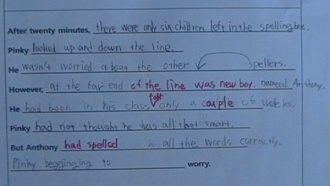 After twenty minutes, there were only six children left in the spelling bee.
Pinky looked up and down the line.
He wasn't worried about the other spellers.
However, at the far end of the line was new boy, named Anthony.
He had been in his class for only a couple of weeks.
Pinky had not thought he was all that smart.
But Anthony had spelled all the words correctly.
Pinky beggining to worry.